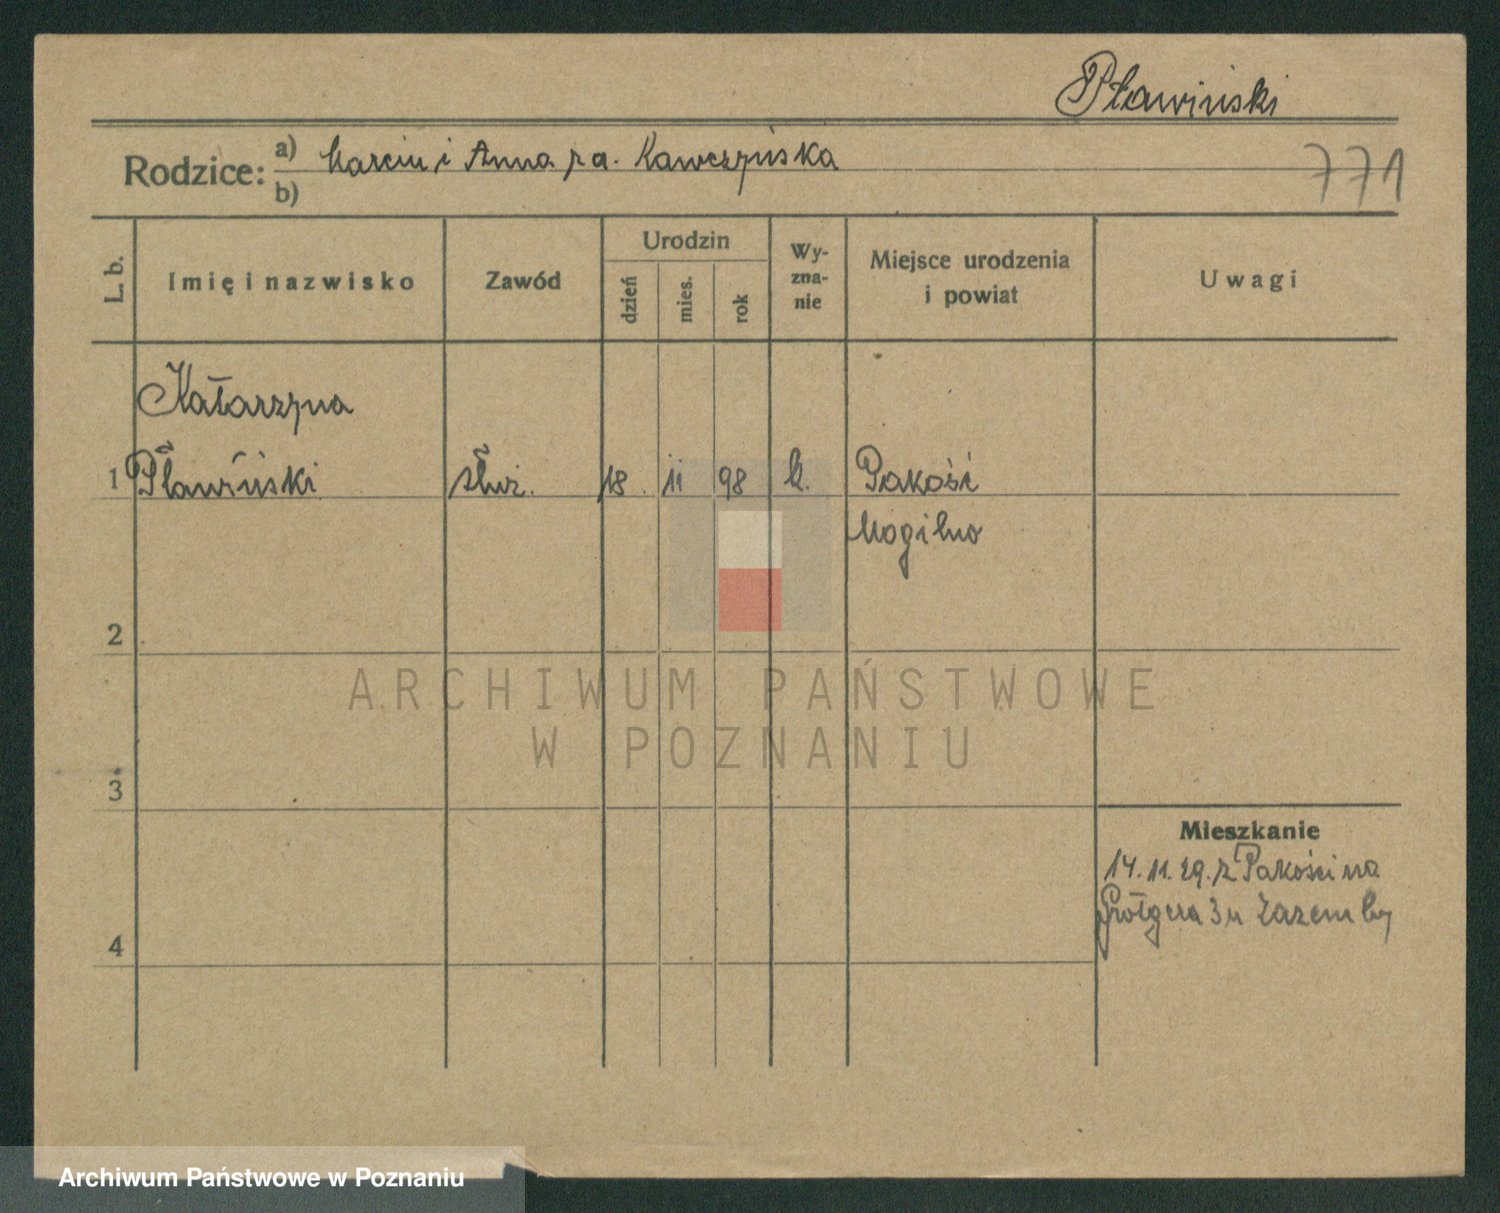 Pławiński
Rodzice: a) Marcin i Anna z d. Kawczyńska
b)
771
L. b.
Imię i nazwisko
Zawód
Urodzin
dzień
mies.
rok
Wy-
zna-
nie
Miejsce urodzenia
i powiat
Uwagi
Katarzyna
1 Pławiński służ. 18. 11 98 k. Pakość
Mogilno
2
3
4
Mieszkanie
14.11.29. z Pakości na
3 u Zaremby
ARCHIWUM PAŃSTWOWE
W POZNANIU
Archiwum Państwowe w Poznaniu